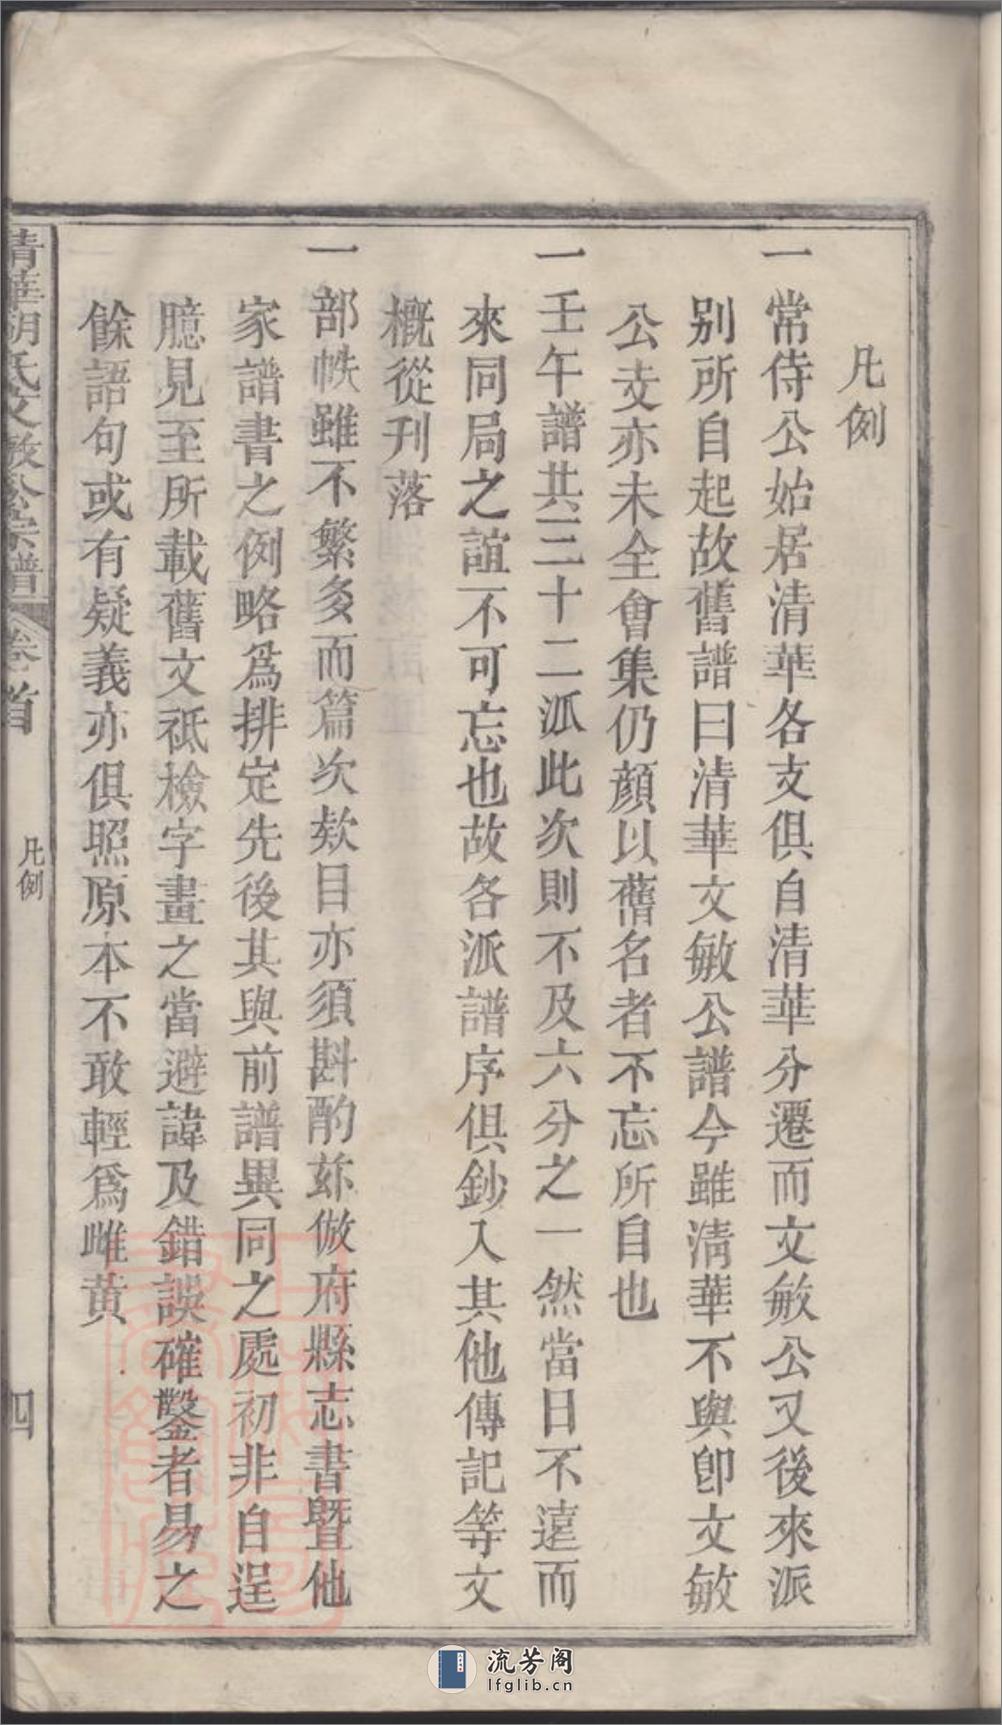 凡例
一常侍公始居清華各支俱自清華分遷而文敏公又後來派
别所自起故舊譜曰清華文敏公譜今雖清華不與卽文敏
公支亦未全會集仍顏以舊名者不忘所自也
一壬午譜共三十二派此次則不及六分之一然當日不遠而
來同局之誼不可忘也故各派譜序俱鈔入其他傳記等文
槪從刋落
一部帙雖不繁多而篇次欵目亦須斟酌玆倣府縣志書曁他
家譜書之例略爲排定先後其與前譜異同之處初非自逞
臆見至所載舊文祇檢字畫之當避諱及錯誤確鑿者易之
餘語句或有疑義亦俱照原本不敢輕爲雌黄
清華胡氏文敏公宗譜 卷首 凡例 四
流芳阁
lfglib.cn